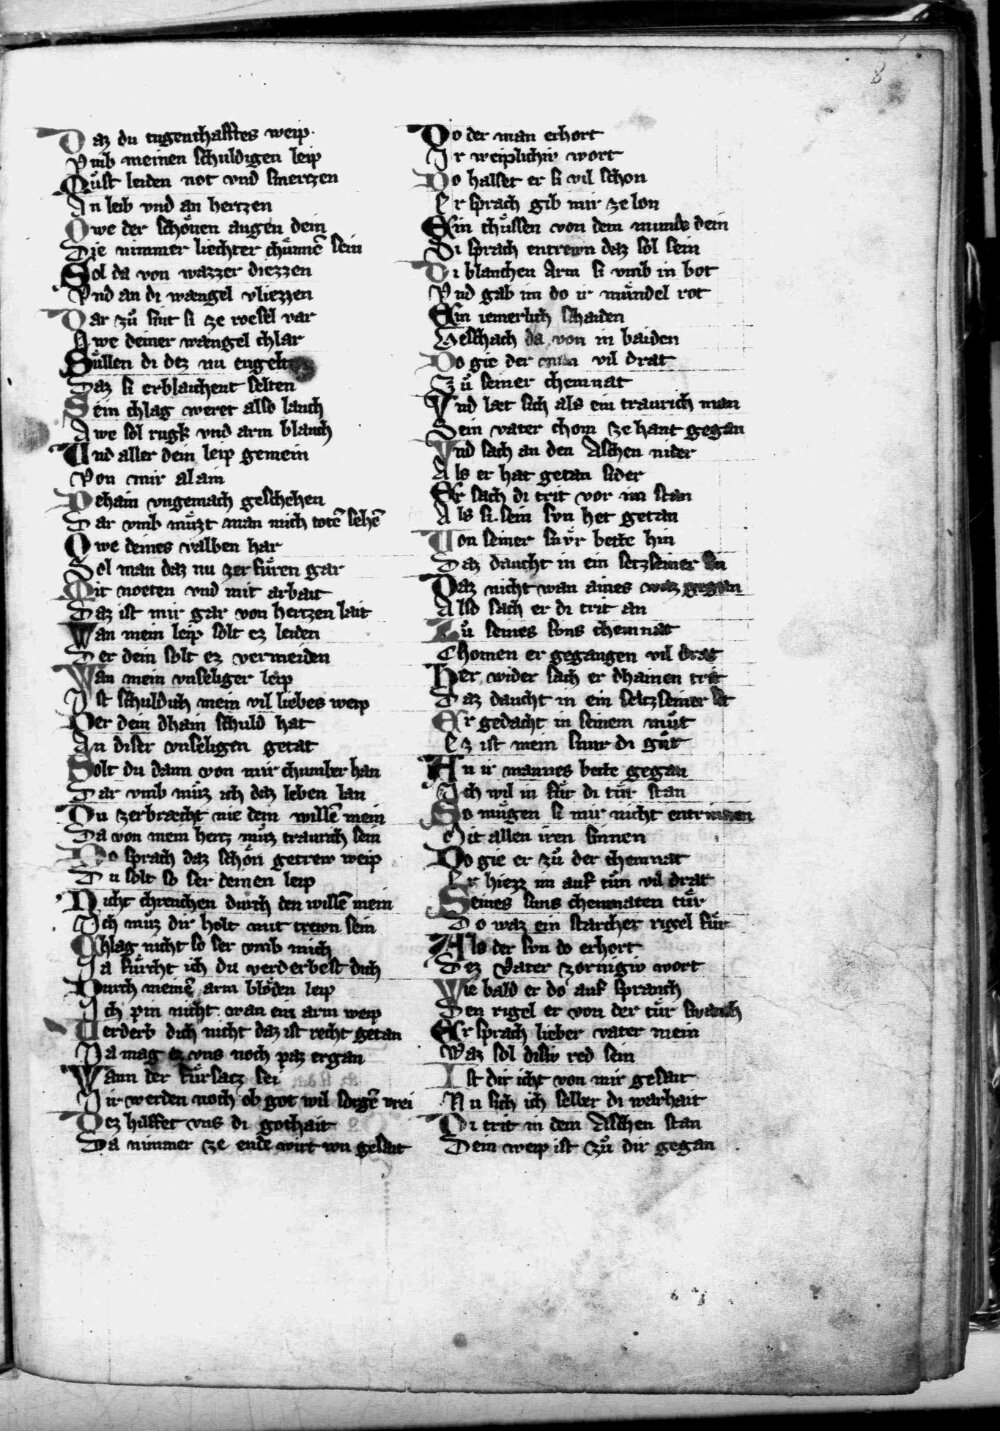 8
Daz du tugenthafftes weip
Vmb meinen schuldigen leip
Must leiden not vnd smertzen
An leib vnd an hertzen
Owe der schönen augen dein
Die nimmer liechter chunnē sein
Sol da von wazzer diezzen
Vnd an di wængel vliezzen
Dar zů sint si ze roesel var
Awe deiner wængel chlar
Sůllen di dez nu engelten
Daz si erblaichent selten
Sein chlag weret also lanch
Awe sol rugk vnd arm blanch
Vnd aller dein leip gemein
Von mir alain
Dehain vngemach geschehen
Dar vmb můzt man mich totē sehē
Owe deines valben har
Sol man daz nu zer fůren gar
Mit noeten vnd mit arbait
Daz ist mir gar von hertzen lait
Wan mein leip solt ez leiden
Der dein solt ez vermeiden
Wan mein vnseliger leip
Ist schuldich mein vil liebes weip
Der dein dhain schuld hat
An diser vnseligen getat
Solt du dann von mir chumber han
Dar vmb můz ich daz leben lan
Du zerbræcht nie dem willē mein
Da von mein hertz můz traurich sein
Do sprach daz schön getrew weip
Du solt so ser deinen leip
Nicht chrenchen durch den willē mein
Ich můz dir holt mit trewn sein
Chlag nicht so ser vmb mich
Ja fůrcht ich du verderbest dich
Durch meinē arm blöden leip
Ich pin nicht wan ein arm weip
Verderb dich nicht daz ist recht getan
Ja mag ez vns noch paz ergan
Wann der fůrsatz sei
Wir werden noch ob got wil sorgē vrei
Dez hilffet vns di gothait
Da nimmer ze ende wirt von gesait
Do der man erhort
Ir weiplichiv wort
Do halset er si vil schon
Er sprach gib mir ze lon
Ein chůssen von dem munde dein
Si sprach entrewn daz sol sein
Di blanchen arm si vmb in bot
Vnd gab im do ir můndel rot
Ein iemerlich schaiden
Geschach da von in baiden
Do gie der man vil drat
Zů seiner chemnat
Vnd læt sich als ein traurich man
Sein vater chom ze hant gegan
Vnd sach an den Aschen nider
Als er hat getan sider
Er sach di trit vor im stan
Als si sein svn het getan
Von seiner snvr bette hin
Daz daucht in ein seltzseiner sin
Daz nicht wan aines waz gegan
Also sach er di trit an
Zů seines svns chemnat
Chomen er gegangen vil drat
Her wider sach er dhainen trit
Daz daucht in ein seltzseiner sit
Er gedacht in seinem můt
Ez ist mein snur di gůt
An ir mannes bette gegan
Ich wil in fůr di tůr stan
So můgen si mir nicht entrinnen
Mit allen iren sinnen
Do gie er zů der chemnat
Er hiezz im auf tůn vil drat
Seines suns chemnaten tůr
Do waz ein starcher rigel fůr
Als der svn do erhort
Dez Vater zornigiv wort
Wie bald er do auf spranch
Den rigel er von der tůr swanch
Er sprach lieber vater mein
Waz sol disiv red sein
Ist dir icht von mir gesait
Nu sich ich selber di warhait
Di trit in dem Aschen stan
Dein weip ist zů dir gegan